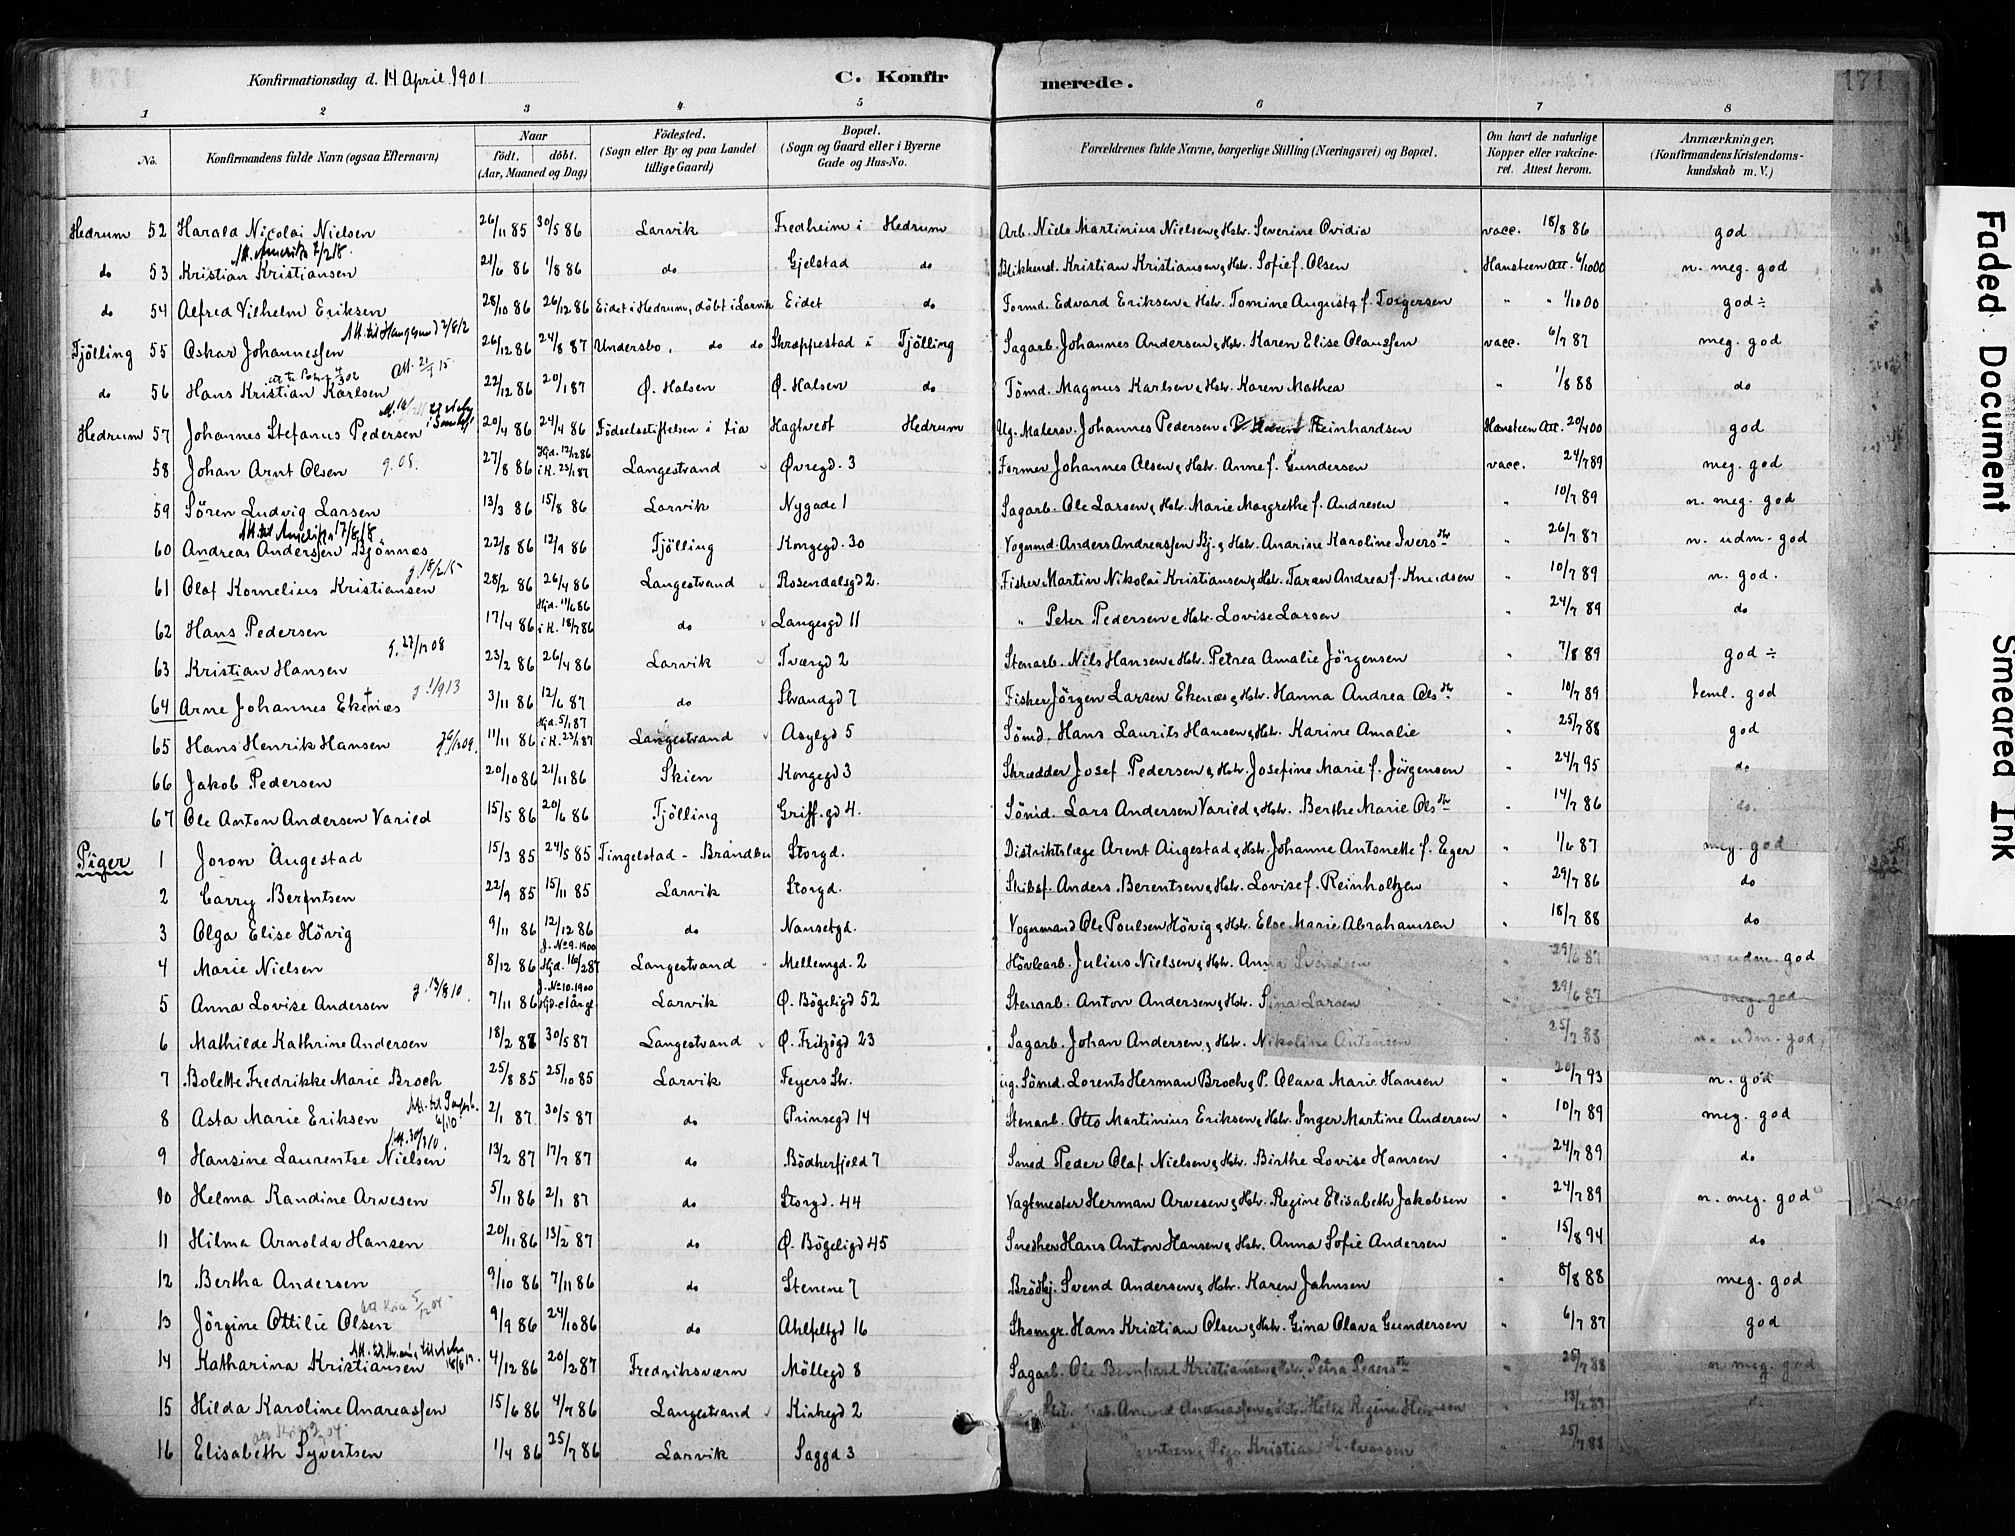 Konfirmationsdag d. 14 April 1901 C. Konfirmerede. 171
1 2 3 4 5 6 7 8
No. Konfirmandens fulde Navn (ogsaa Efternavn) Naar födt. döbt. (Aar, Maaned og Dag) Födested. (Sogn eller By og paa Landet tillige Gaard) Bopæl. (Sogn og Gaard eller i Byerne Gade og Hus-No. Forældrenes fulde Navne, borgerlige Stilling (Næringsvei) og Bopæl. Om havt de naturlige Kopper eller vakcineret. Attest herom. Anmærkninger, (Konfirmandens Kristendomskundskab m. V.)
Hedrum 52 Harald Nicolai Nielsen 26/11 85 30/5 86 Larvik Fredheim i Hedrum Arb. Niels Martinius Nielsen & Hstr. Severine Ovidia vacc. 18/8 86 god
Att. Amerika 7/2 18.
do 53 Kristian Kristiansen 21/6 86 1/8 86 do Gjelstad do Blikkensl. Kristian Kristiansen & Hstr. Sofie f. Olsen Hansteen att. 6/10 00 n. meg. god
do 54 Alfred Vilhelm Eriksen 28/10 86 26/12 86 Eidet i Hedrum, döbt i Larvik Eidet do Formd. Edvard Eriksen & Hstr. Tomine Augusta f. Torgersen " " 1/10 00 god ÷
Tjölling 55 Oskar Johannessen 26/12 86 24/8 87 Undersbo, do do Skræppestad i Tjölling Sagarb. Johannes Andersen & Hstr. Karen Elise Olaussen vacc. 6/7 87 meg. god
do 56 Hans Kristian Karlsen 22/12 86 20/1 87 Ø. Halsen Ø. Halsen do Tömd. Magnus Karlsen & Hstr. Karen Mathea " 1/8 88 do
Hedrum 57 Johannes Stefanus Pedersen 20/4 86 24/4 86 Födselsstiftelsen i Xia Hagtvedt Hedrum Ug. Malersv. Johannes Pedersen & P. Karen Reinhardsen Hansteen Att. 20/4 00 god
58 Johan Arnt Olsen g. 08. 27/8 86 Hjd. 12/12 86 i K. 23/1 87 Langestrand Øvregd. 3 Former Johannes Olsen & Hstr. Anne f. Gundersen vacc. 24/7 89 meg. god
59 Sören Ludvig Larsen 13/3 86 15/8 86 Larvik Nygade 1 Sagarb. Ole Larsen & Hstr. Marie Margrethe f. Andresen " 10/7 89 n. meg. god
60 Andreas Anderssen Bjönnæs 22/8 86 12/9 86 Tjölling Kongegd. 30 Vognmd. Anders Andreassen Bj. & Hstr. Andrine Karoline Iversdtr " 26/7 87 n. udm. god
61 Olaf Kornelius Kristiansen 28/2 86 26/4 86 Langestrand Rosendalsgd 2. Fisker Martin Nikolai Kristiansen & Hstr. Taran Andrea f. Knudsen " 10/7 89 n. god.
62 Hans Pedersen 17/4 86 Hjd. 11/6 86 i K. 18/7 86 do Langesgd 11 " Peter Pedersen & Hstr. Lovise Larsen " 24/7 89 do
63 Kristian Hansen 23/2 86 26/4 86 Larvik Tværgd 2 Stenarb. Nils Hansen & Hstr. Petrea Amalie Jörgensen " 7/8 89 god ÷
64 Arne Johannes Ekenæs g 1/9 13 3/11 86 12/6 87 do Strandgd 7 Fisker Jörgen Larsen Ekenæs & Hstr. Hanna Andrea Olsdtr " 10/7 89 teml. god
65 Hans Henrik Hansen 11/11 86 Hjd. 5/1 87 i K. 23/1 87 Langestrand Asylgd 5 Sömd. Hans Laurits Hansen & Hstr. Karine Amalie 25/7 88 god
66 Jakob Pedersen 20/10 86 21/11 86 Skien Kongegd 3 Skrædder Josef Pedersen & Hstr. Josefine Marie f. Jörgensen " 24/7 95 do
67 Ole Anton Andersen Varild 15/5 86 20/6 86 Tjölling Griff.gd 4. Sömd. Lars Andersen Varild & Hstr. Berthe Marie Olsdtr " 14/7 86 do.
Piger 1 Joron Augestad 15/3 85 24/5 85 Tingelstad - Brandbu Storgd. Distriktslæge Arent Augestad & Hstr. Johanne Antonette f. Eger " 1/6 87 meg. god
2 Carry Berentsen 22/9 85 15/11 85 Larvik Storgd. Skibsf. Anders Berentsen & Hstr. Lovise f. Reinholtzen " 29/7 86 do
3 Olga Elise Hövig 9/11 86 12/12 86 do Nansetgd. Vognmand Ole Poulsen Hövig & Hstr. Else Marie Abrahamsen " 18/7 88 do
4 Marie Nielsen 8/12 86 J. No 9. 1900 Hjd. 16/2 87 Langestrand Mellemgd. 2 Hövlearb. Julius Nielsen & Hstr. Anna Svendsen " 29/6 87 n. udm. god
5 Anna Lovise Andersen g. 13/8 10. 7/11 86 J. No 10. 1900 Larvik Ø. Bögeligd 52 Stenarb. Anton Andersen & Hstr. Sina Larsen " 29/6 87 meg. god
6 Mathilde Kathrine Andersen 18/2 87 30/5 87 Langestrand Ø. Fritzögd 23 Sagarb. Johan Andersen & Hstr. Nikoline Antonsen " 25/7 88 n. udm. god
7 Bolette Fredrikke Marie Broch 25/8 85 25/10 85 Larvik Feyers Str. ug. Sömd. Lorents Herman Broch & P. Olava Marie Hansen " 20/7 93 n. god
8 Asta Marie Eriksen 2/1 87 30/5 87 do Prinsegd 14 Stenarb. Otto Martinius Eriksen & Hstr. Inger Martine Andersen " 10/7 89 meg. god
9 Hansine Laurentse Nielsen 13/2 87 17/7 87 do Bödkerfjeld 7 Smed Peder Olaf Nielsen & Hstr. Birthe Lovise Hansen " 24/7 89 do
10 Helma Randine Arvesen 5/11 86 2/1 87 do Storgd. 44 Vagtmester Herman Arvesen & Hstr. Regine Elisabeth Jakobsen " 24/7 89 n. meg. god
11 Hilma Arnolda Hansen 20/11 86 13/2 87 do Ø. Bögeligd 45 Snedker Hans Anton Hansen & Hstr. Anna Sofie Andersen " 15/8 94 do
12 Bertha Andersen 9/10 86 7/11 86 do Stenene 7 Brödkj. Svend Andersen & Hstr. Karen Jahnsen " 8/8 88 meg. god
13 Jörgine Ottilie Olsen 9/9 86 24/10 86 do Ahlfeltgd 16 Skomgr. Hans Kristian Olsen & Hstr. Gina Olava Gundersen " 6/7 87 god
14 Katharina Kristiansen 4/12 86 20/2 87 Fredriksværn Möllegd 8 Sagarb. Ole Bernhard Kristiansen & Hstr. Petra Pedersdtr 25/7 88 n. meg. god
15 Hilda Karoline Andreassen 15/6 86 4/7 86 Langestrand Kirkegd 2 Andreassen & Hstr. Helle Regine Hansen 13/7 89 do
16 Elisabeth Syvertsen 1/4 86 25/7 86 Larvik Saggd 3 Pige Kristiane Halvorsen 25/7 88
Faded Document Smeared Ink